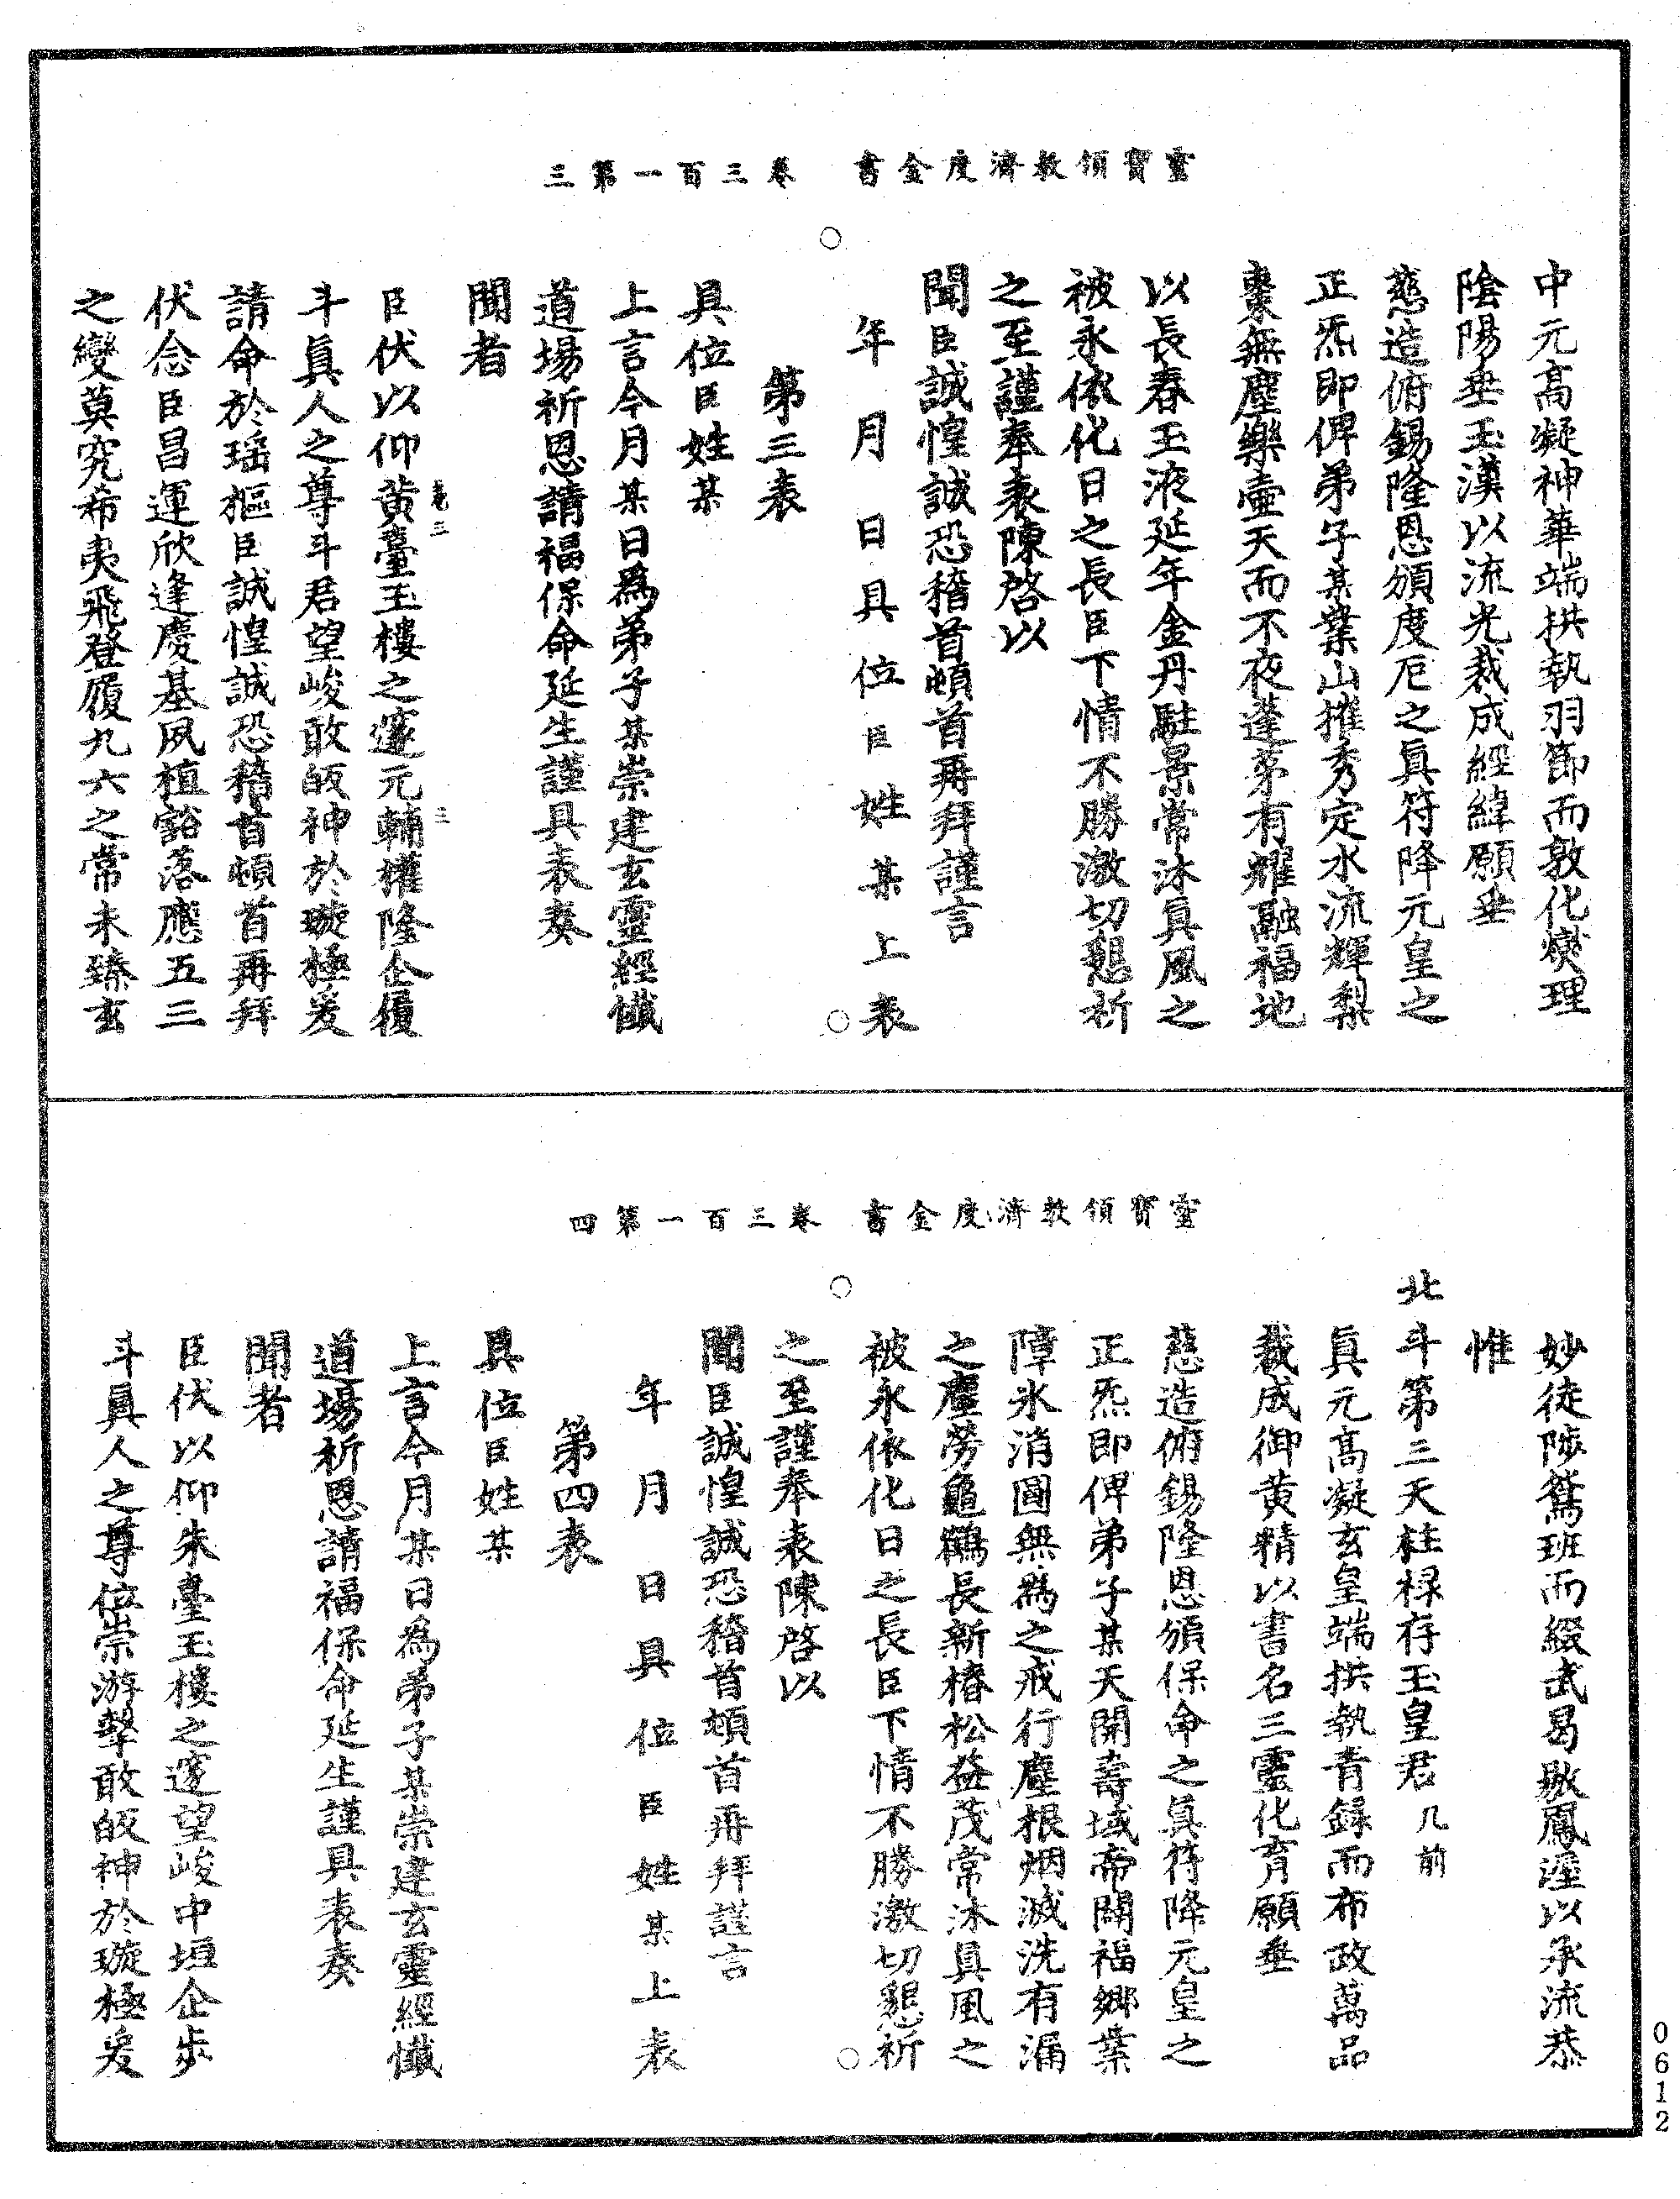 靈寶領教濟度金書　卷三百一第三
中元高凝神華端拱執羽節而敦化燮理
陰陽垂玉漢以流光裁成經緯願垂
慈造俯錫隆恩頒度厄之真符降元皇之
正炁即俾弟子某業山摧秀定水流輝梨
棗無塵樂壼天而不夜蓬茅有耀融福地
以長春玉液延年金丹駐景常沐真風之
被永依化日之長臣下情不勝激切懇祈
之至謹奉表陳啓以
聞臣誠惶誠恐稽首頓首再拜謹言
年　月　日具　位臣姓某上表
第三表
具位臣姓某
上言今月某日為弟子某崇建玄靈經懺
道場祈恩請福保命延生謹具表奏
聞者
臣伏以仰黃臺玉樓之邃元輔權隆企履
斗真人之尊斗君望峻敢皈神於璇極爰
請命於瑶樞臣誠惶誠恐稽首頓首再拜
伏念臣昌運欣逢慶基夙植豁落應五三
之變莫究希夷飛登履九六之常未臻玄
卷三
三
靈寶領教濟度金書　卷三百一第四
妙徒陟鵉班而綴武曷敭鳳淫以承流恭
惟
北斗第三天柱祿存玉皇君几前
真元高凝玄皇端拱執青錄而布政萬品
裁成御黃精以書名三靈化育願垂
慈造俯錫隆恩頒保命之真符降元皇之
正炁即俾弟子某天開壽域帝闢福鄉業
障氷消圖無為之戒行塵根烟滅洗有漏
之塵勞龜鶴長新椿松益茂常沐真風之
被永依化日之長臣下情不勝激切懇祈
之至謹奉表陳啓以
聞臣誠惶誠恐稽首頓首再拜謹言
年　月　日具　位臣姓某上表
第四表
具位臣姓某
上言今月某日為弟子某崇建玄靈經懺
道場祈恩請福保命延生謹具表奏
聞者
臣伏以仰朱臺玉樓之邃望峻中垣企步
斗真人之尊位崇游擊敢皈神於璇極爰
0612